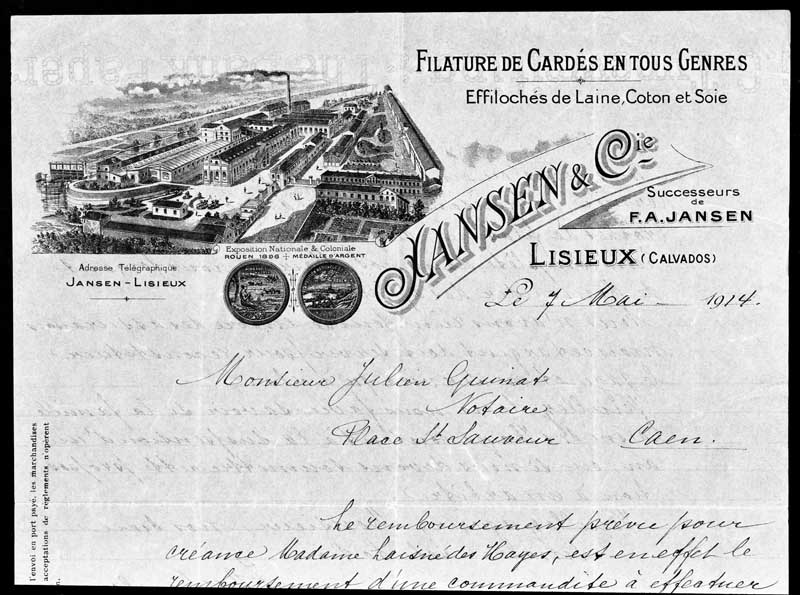 FILATURE DE CARDÉS EN TOUS GENRES
Effilochés de Laine, Coton et Soie
JANSEN & Cie
Successeurs
de
F.A. JANSEN
LISIEUX (CALVADOS)
Exposition Nationale & Coloniale
ROUEN 1896 MÉDAILLE D'ARGENT
Adresse Télégraphique
JANSEN-LISIEUX
Le 7 Mai 1914.
Monsieur Julien Guinat
Notaire
Place St Sauveur Caen.
Le remboursement prévu pour
créance Madame Laisné des Hayes, est en effet le
remboursement d'une commandite à effectuer
l'envoi en port payé, les marchandises
acceptations de règlements, n'opèrent